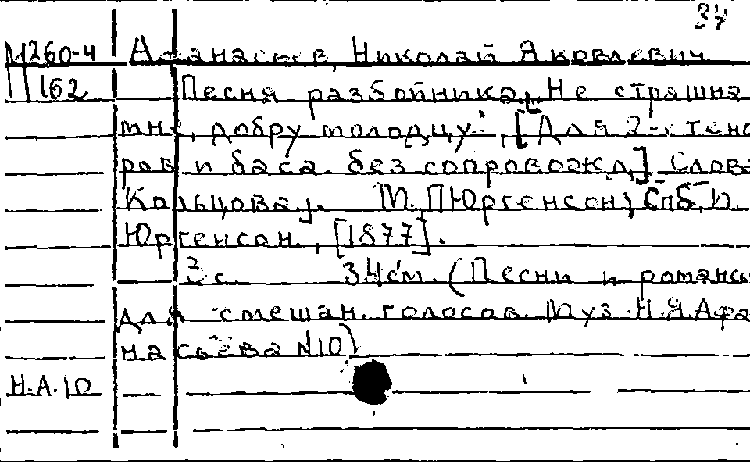 37
М260-4 Афанасьев, Николай Яковлевич
П 162 Песня разбойника „Не страшна
мне, добру молодцу", [Для 2-х тено
ров и баса без сопровожд.] Слова
Кольцова. М. П. Юргенсон, Спб, И.
Юргенсон, [1877].
3 с. 34 см. (Песни и романсы
для смешан. голосов. Муз. Н.Я. Афа
насьева №10)
Н.А. 10